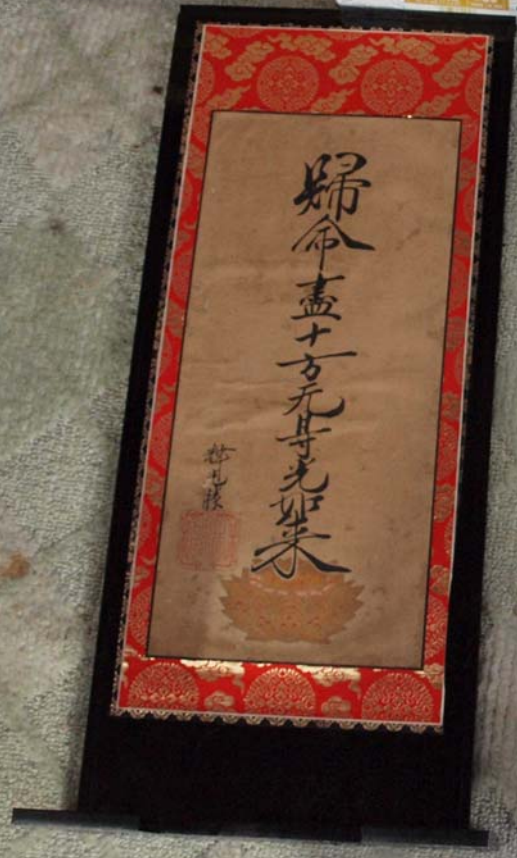 歸命盡十方无㝵光如来
釋